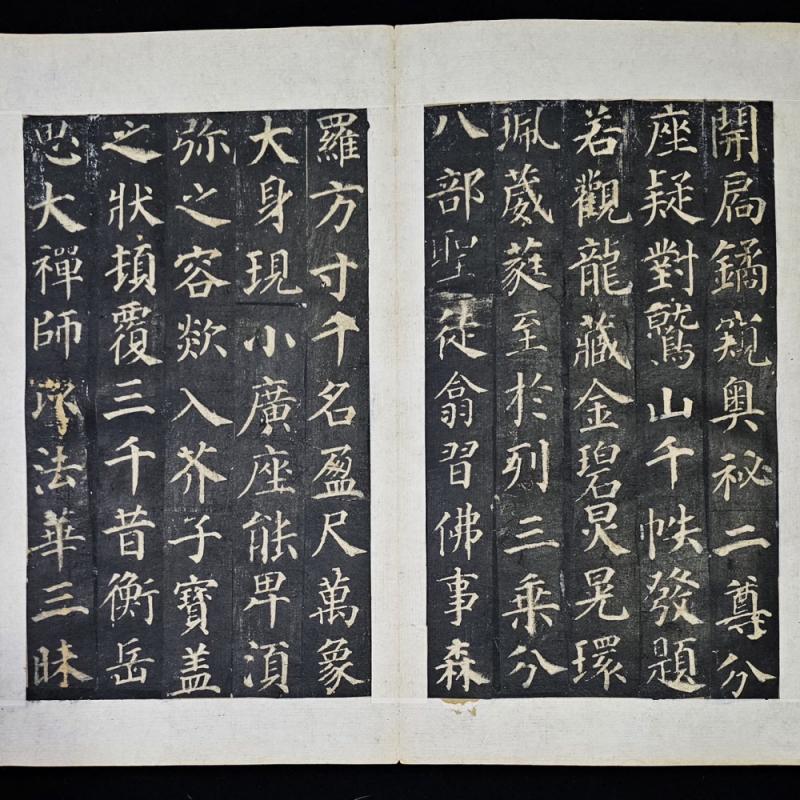 開扃鐍窺奧祕二尊分
座疑對鷲山千帙發題
若觀龍藏金碧炅晃環
珮葳蕤至於列三乘分
八部聖徒翕習佛事森
羅方寸千名盈尺萬象
大身現小廣座能卑須
弥之容欻入芥子寶盖
之狀頓覆三千昔衡岳
思大禪師以法華三昧